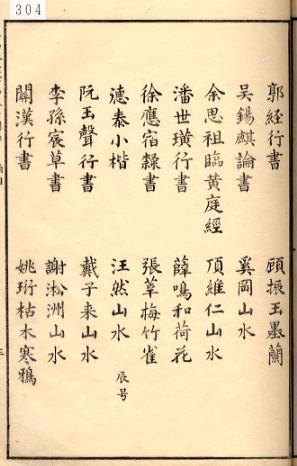 304
郭經行書　顧振玉墨蘭
吳錫麒論書　奚岡山水
余思祖臨黄庭經　項維仁山水
潘世璜行書　薛鳴和荷花
徐應宿録書　張莘梅竹雀
德泰小楷　汪然山水　辰号
阮玉聲行書　戴子来山水
李孫宸草書　謝淞洲山水
闞漢行書　姚珩枯木寒鴉
三